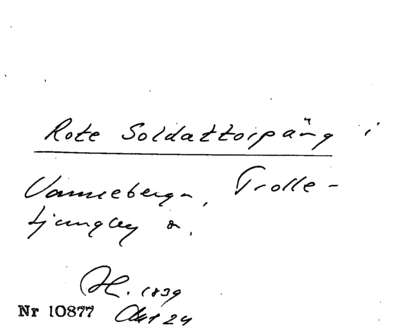 Rote Soldattorpäng i
Vanneberga, Trolle-
ljungby s.
H. 1839
Nr 10877 Akt 24